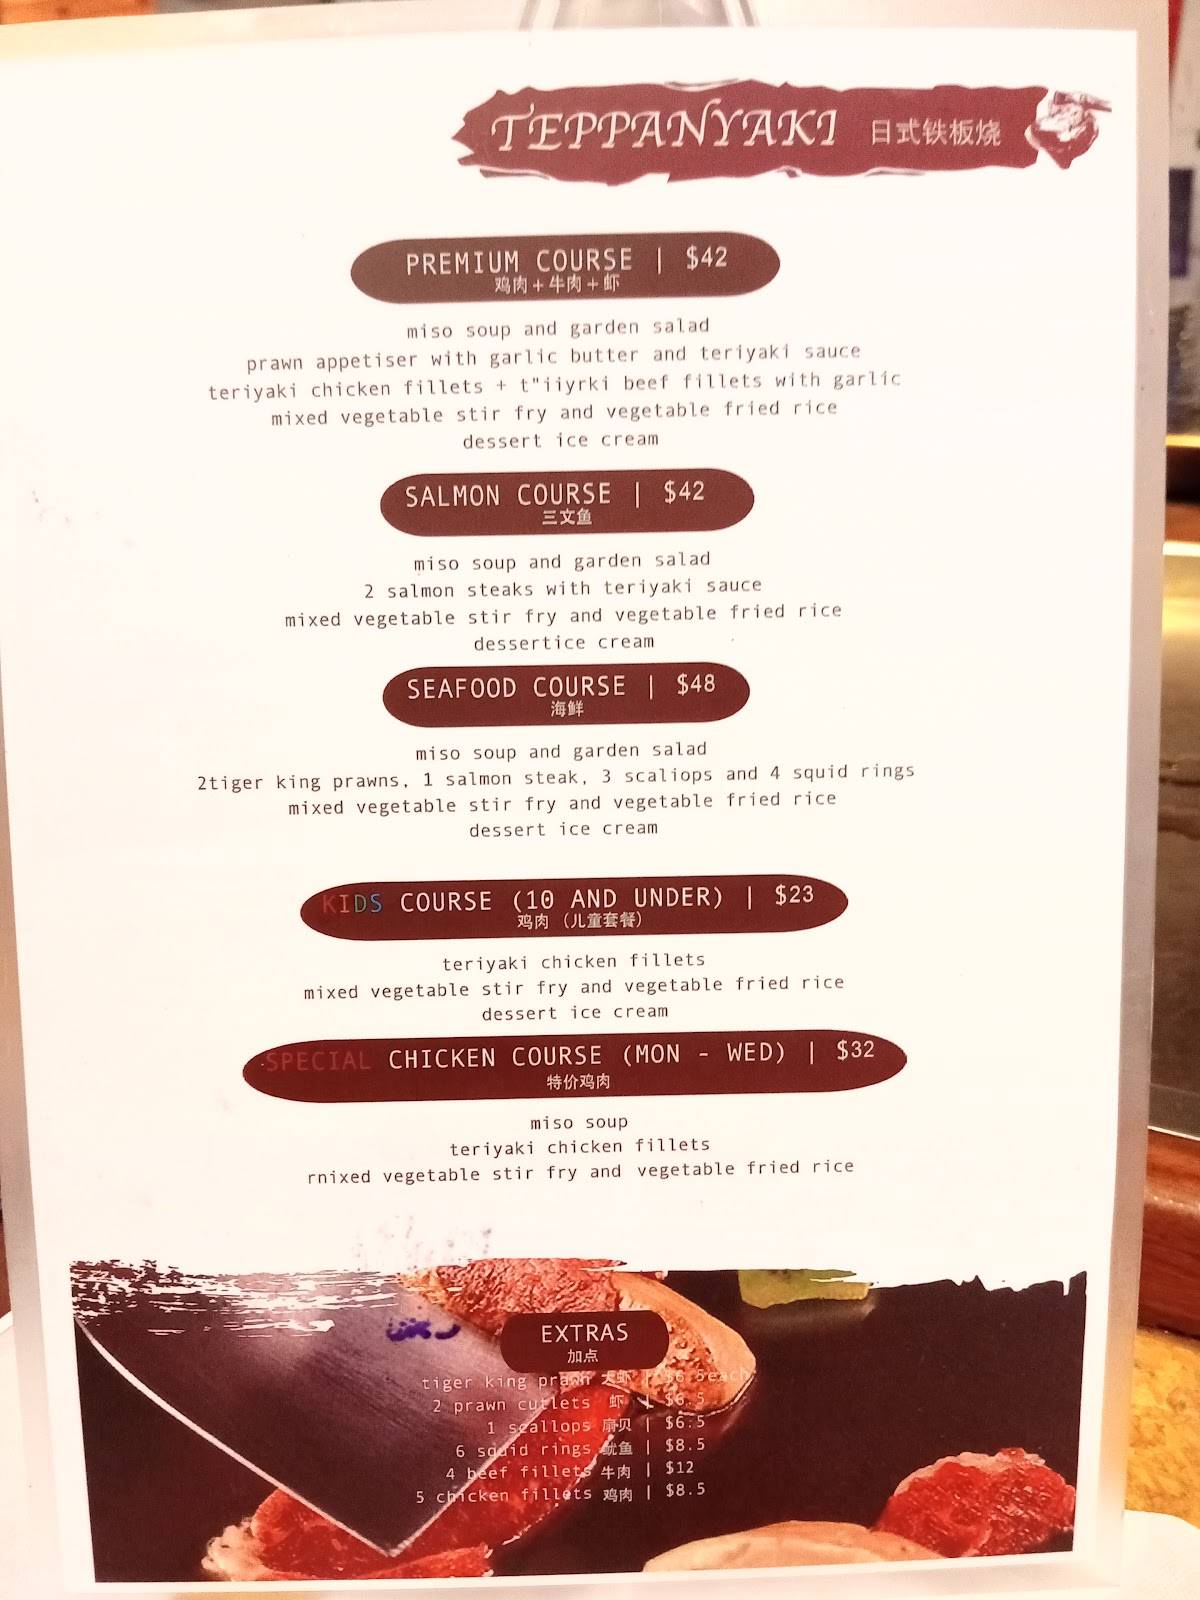 TEPPANYAKI 日式铁板烧
PREMIUM COURSE | $42
鸡肉+牛肉+虾
miso soup and garden salad
prawn appetiser with garlic butter and teriyaki sauce
teriyaki chicken fillets + t"iiyrki beef fillets with garlic
mixed vegetable stir fry and vegetable fried rice
dessert ice cream
SALMON COURSE | $42
三文鱼
miso soup and garden salad
2 salmon steaks with teriyaki sauce
mixed vegetable stir fry and vegetable fried rice
dessertice cream
SEAFOOD COURSE | $48
海鲜
miso soup and garden salad
2tiger king prawns, 1 salmon steak, 3 scaliops and 4 squid rings
mixed vegetable stir fry and vegetable fried rice
dessert ice cream
KIDS COURSE (10 AND UNDER) | $23
鸡肉 (儿童套餐)
teriyaki chicken fillets
mixed vegetable stir fry and vegetable fried rice
dessert ice cream
SPECIAL CHICKEN COURSE (MON - WED) | $32
特价鸡肉
miso soup
teriyaki chicken fillets
rnixed vegetable stir fry and vegetable fried rice
EXTRAS
加点
tiger king prawn 大虾 | $6.5each
2 prawn cutlets 虾 | $6.5
1 scallops 扇贝 | $6.5
6 squid rings 鱿鱼 | $8.5
4 beef fillets 牛肉 | $12
5 chicken fillets 鸡肉 | $8.5